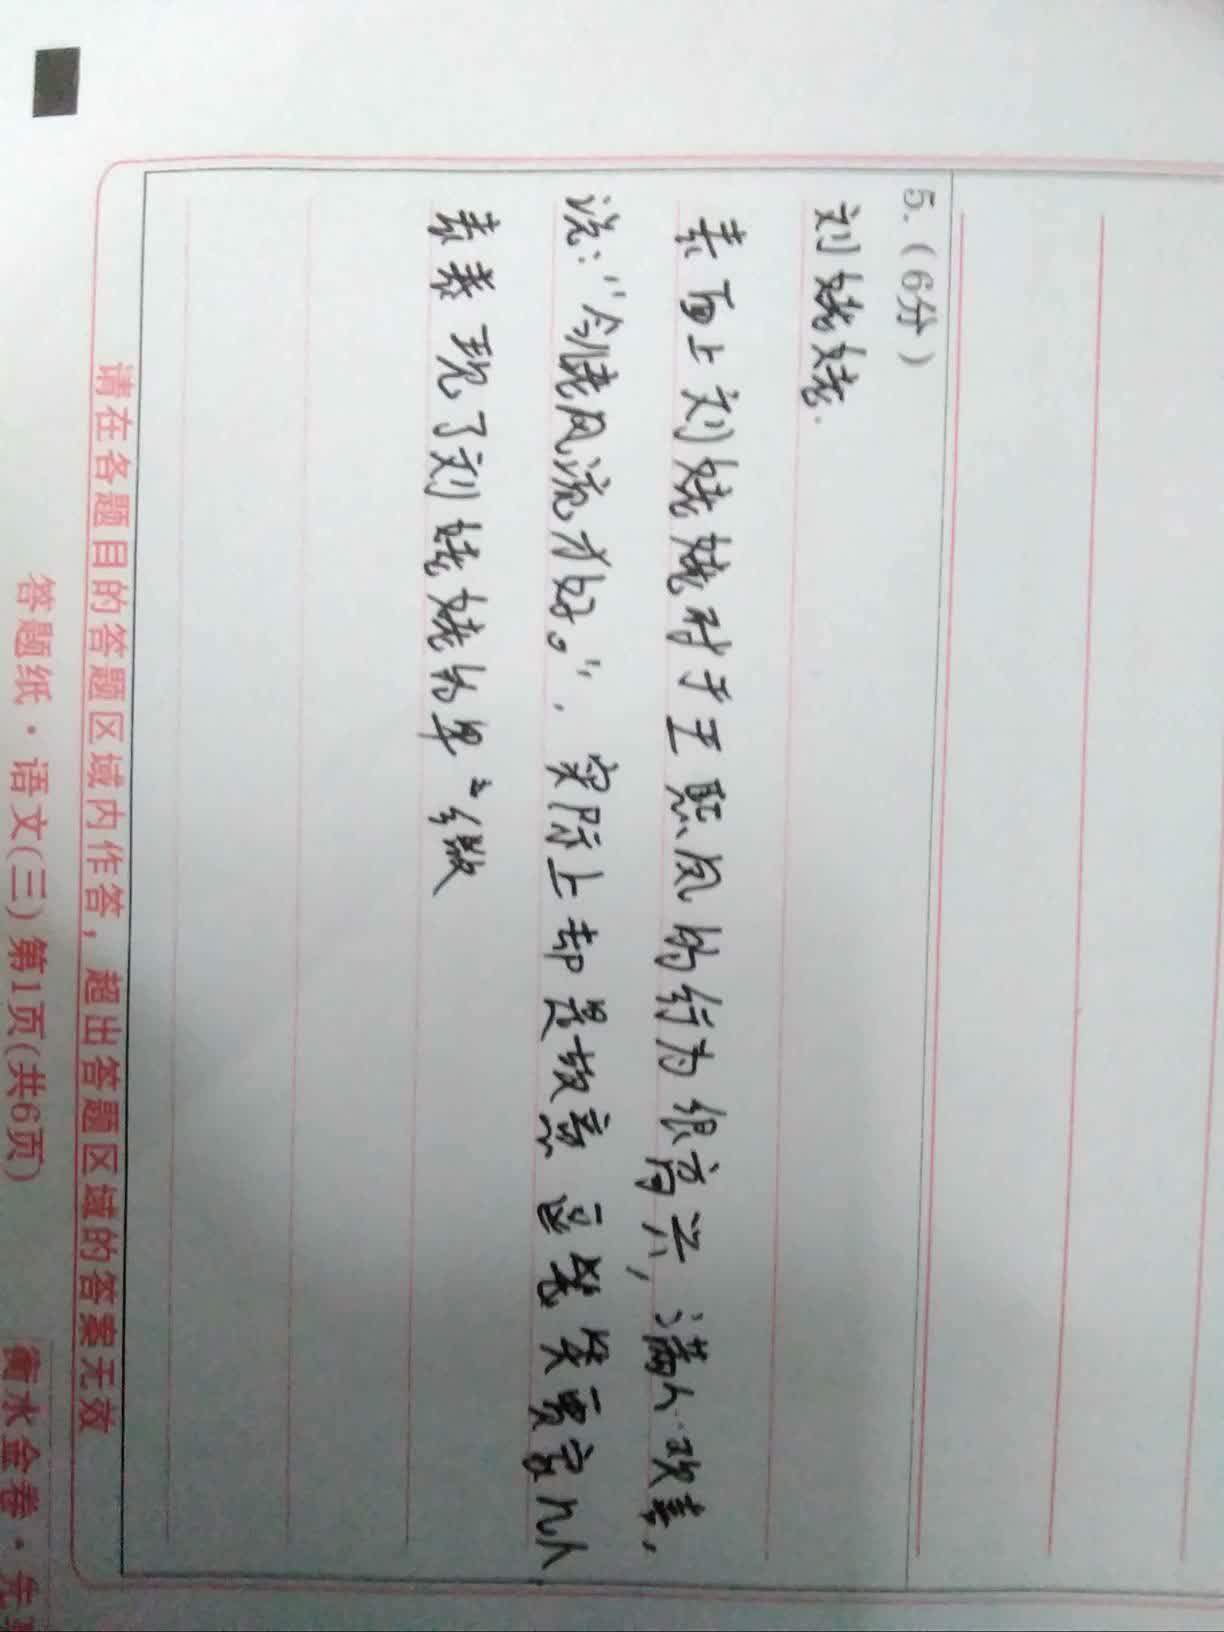 5.(6分)
刘姥姥.
表面上刘姥姥对于王熙凤的行为很高兴,满心欢喜,
说:"今儿老风流才好。",实际上却是故意逗我笑贾家几人
表表现了刘姥姥的卑微
请在各题目的答题区域内作答,超出答题区域的答案无效
答题纸·语文(三) 第1页(共6页) 衡水金卷·先